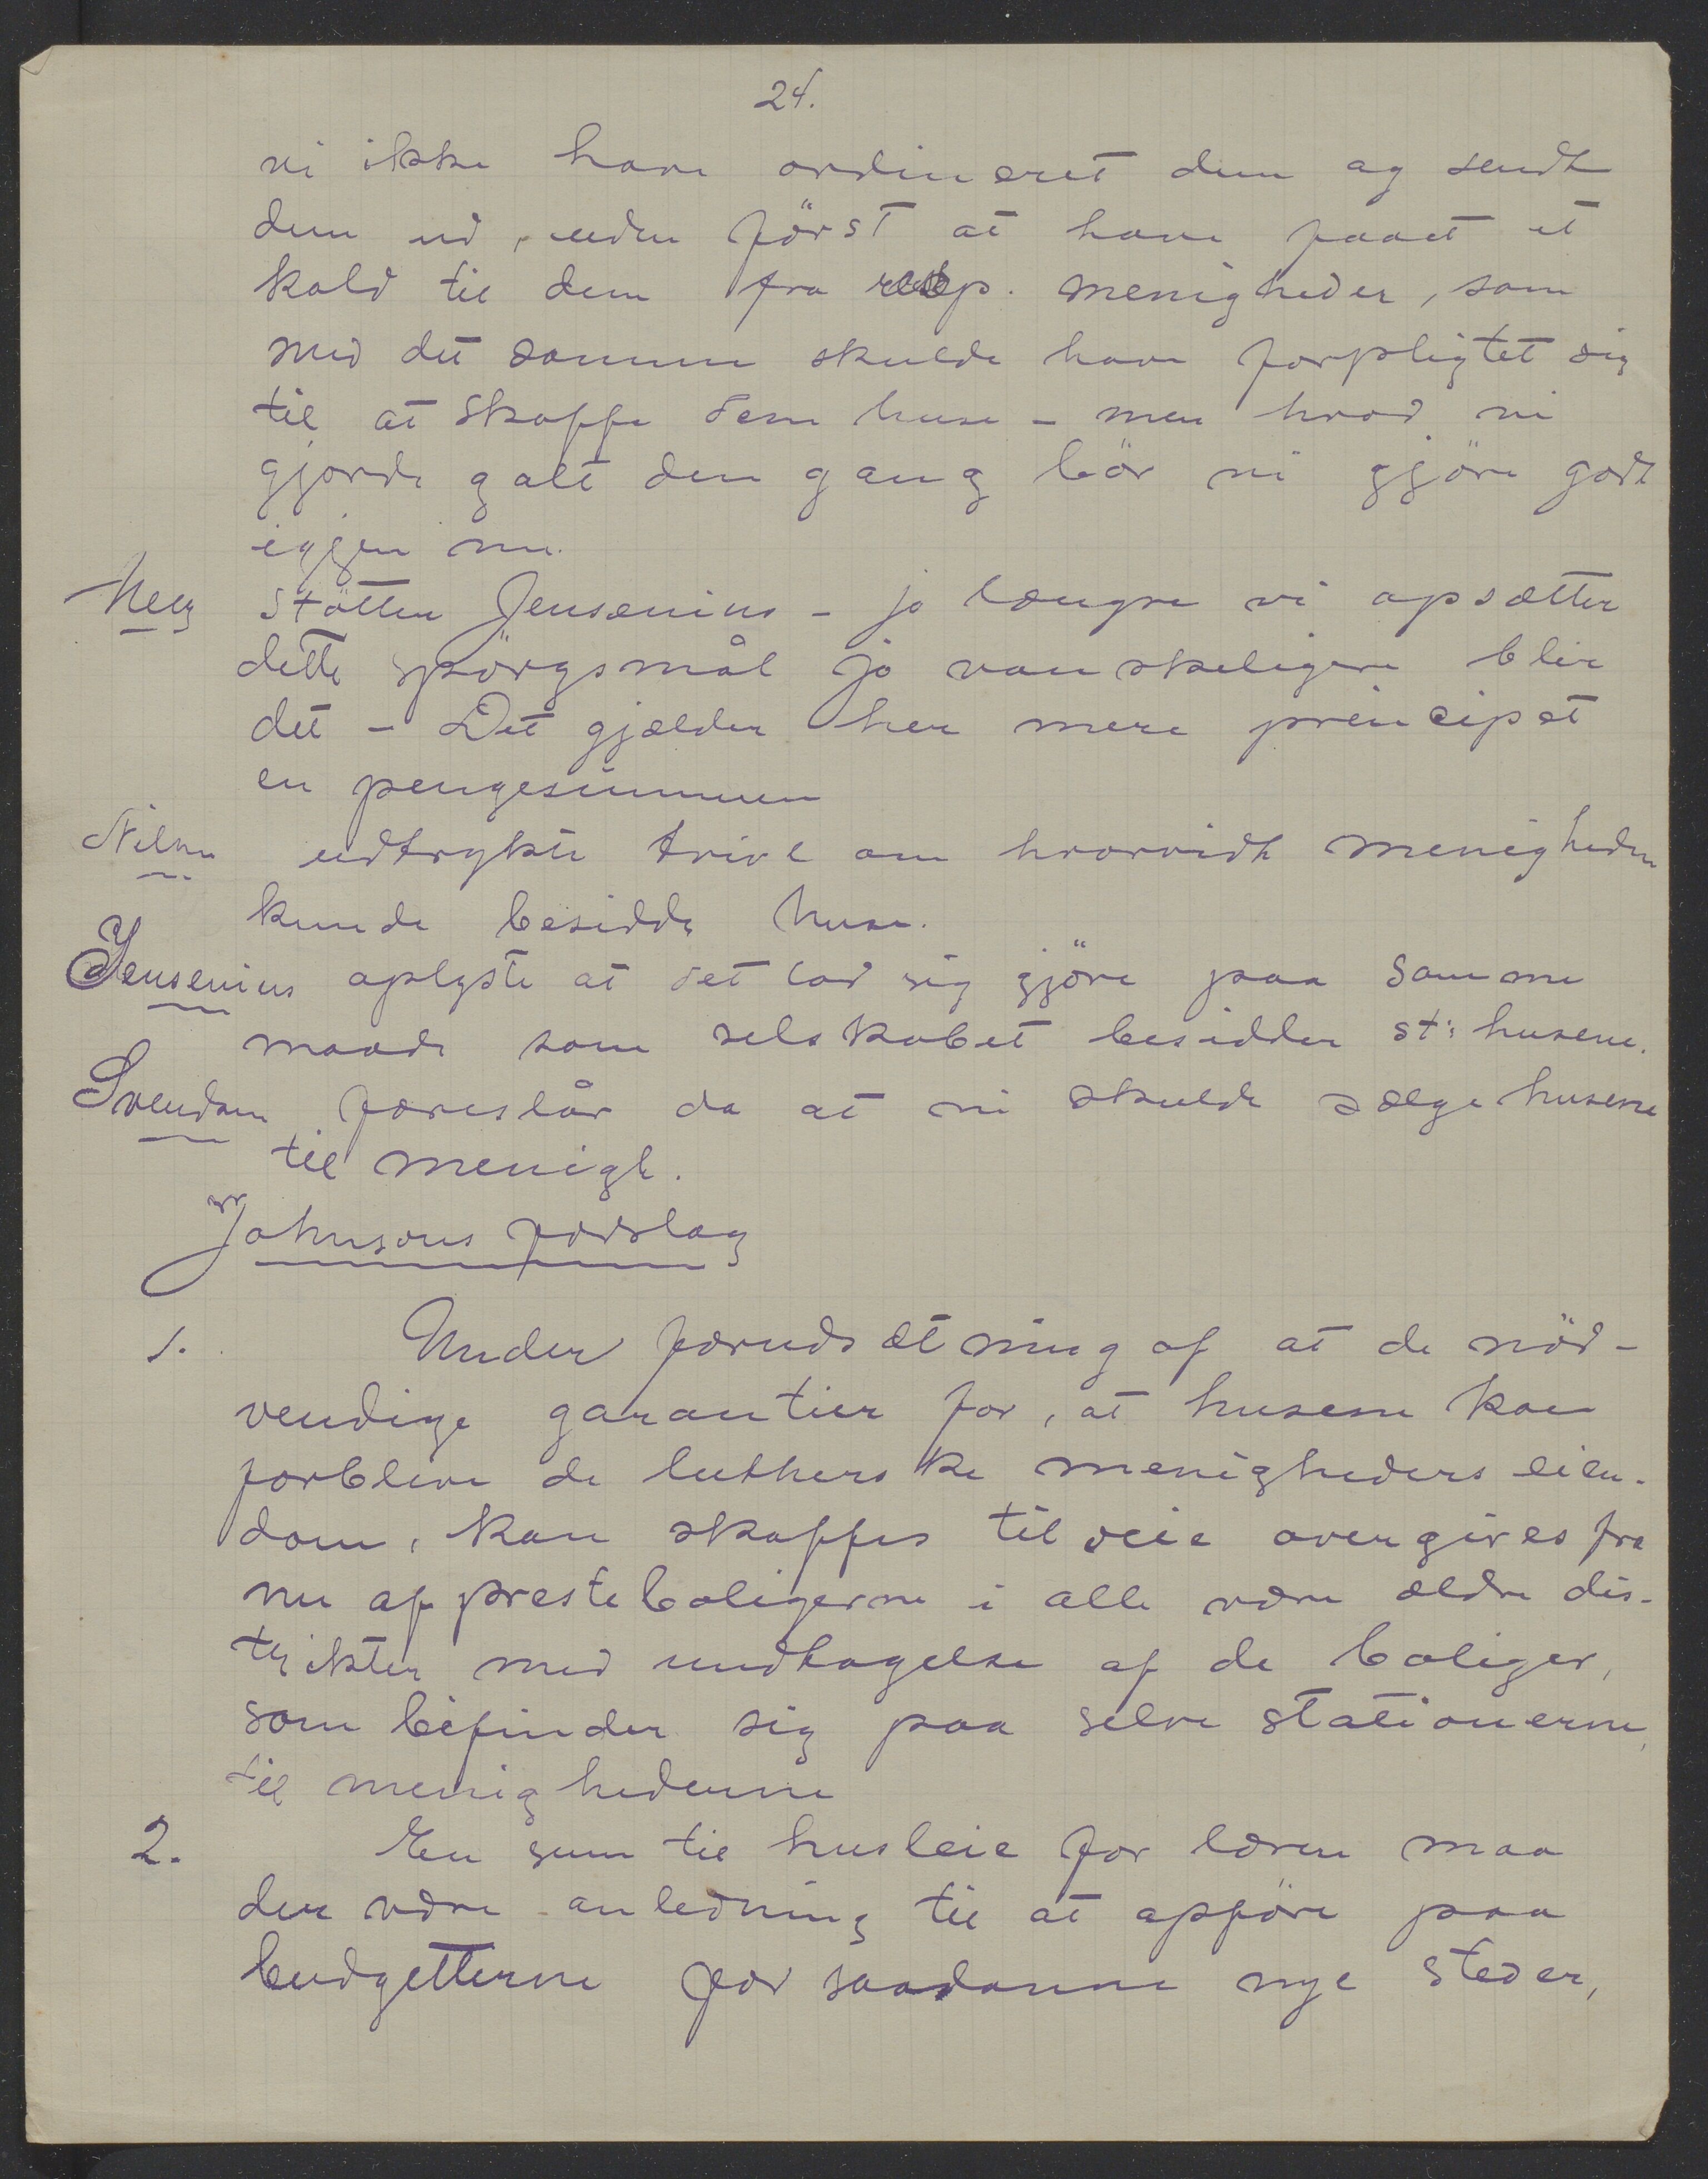 24.
vi ikke have ordineret dem og sendt
dem ud, uden först at have faaet et
kald til dem fra resp. menigheder, som
med det samme skulde have forpligtet sig
til at skaffe dem huse - men hvad vi
gjorde galt den gang bör vi gjöre godt
iggjen nu.
Meeg stötter Jensenius - jo længre vi opsætter
dette spörgsmål jo vanskeligere blir
det - Det gjælder her mere principet
en pengesummen
Nilsen udtrykte tvivl om hvorvidt menigheden
kunde besidde huse.
Jensenius oplyste at det lod sig gjöre paa samme
maade som selskabet besidder st: husene.
Svendsen foreslår da at vi skulde sælge husene
til menigh.
Johnsons forslag
1. Under forudsætning af at de nöd-
vendige garantier for, at husene kan
forblive de lutherske menigheders eien-
dom, kan skaffes tilveie overgives fra
nu af presteboligerne i alle vore ældre dis-
trikter med undtagelse af de boliger,
som befinder sig paa selve stationerne,
til menighederne
2. En sum til husleie for læren maa
der være anledning til at opföre paa
budgetterne for saadanne nye steder,